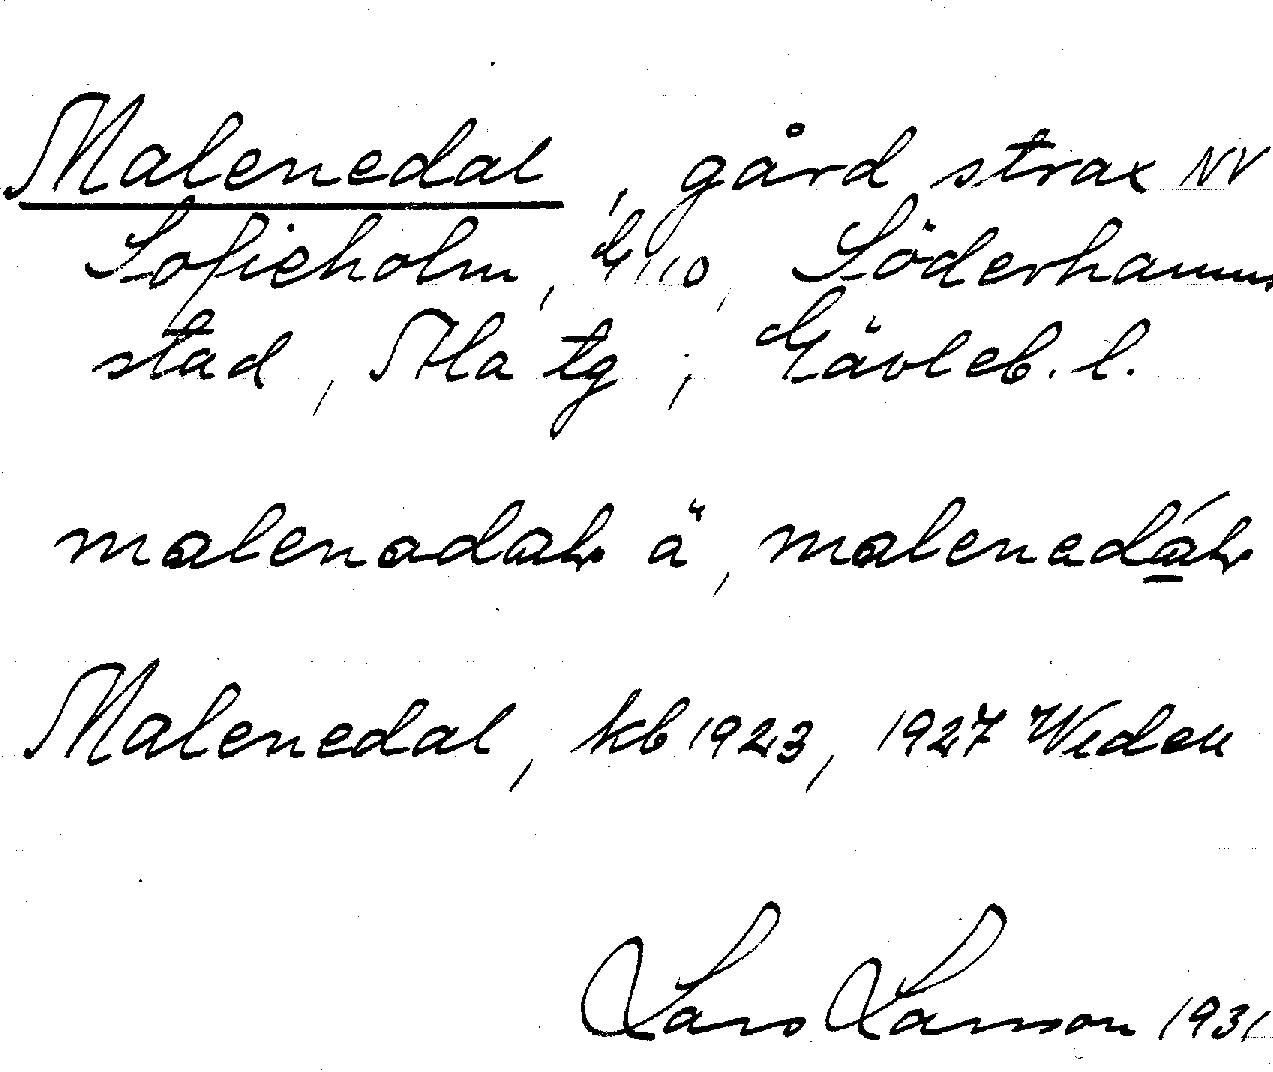 Malenedal, gård strax NV
Sofieholm, G 110, Söderhamns
stad, Ala tg, Gävleb. l.
malenadalv ä, malenedálv
Malenedal, kb 1923, 1927 Weden
Lars Larsson 1931